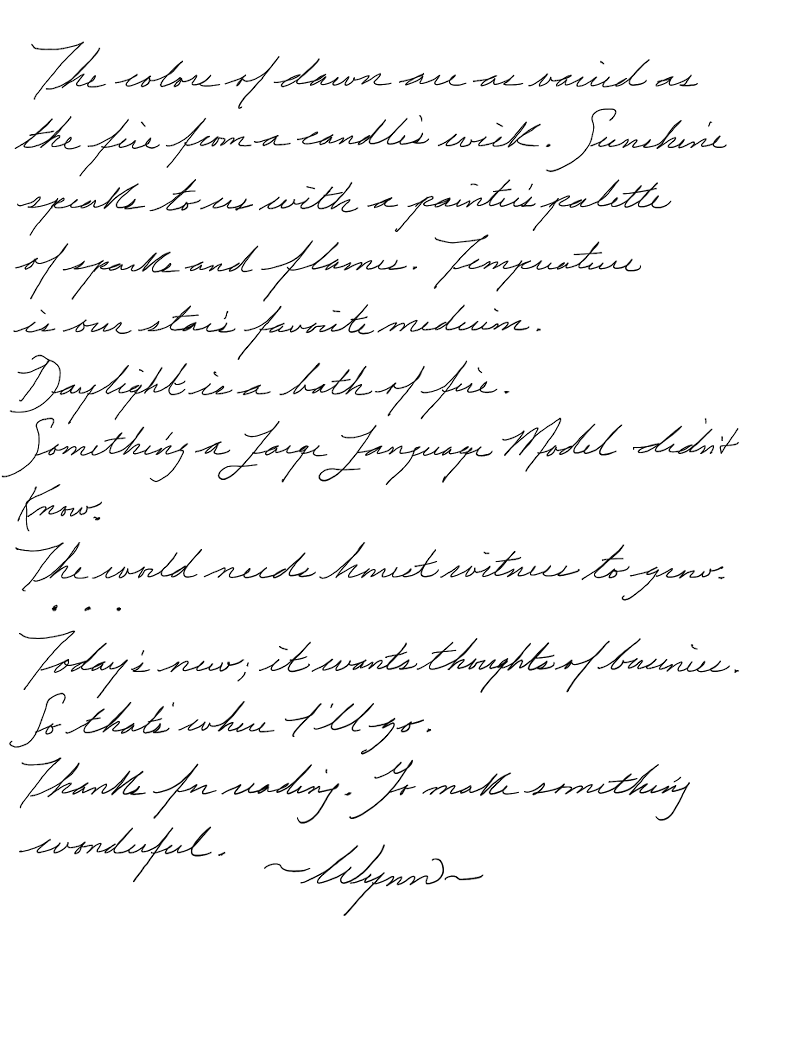 The colors of dawn are as varied as
the fire from a candle's wick. Sunshine
speaks to us with a painter's palette
of sparks and flames. Temperature
is our star's favorite medium.
Daylight is a bath of fire.
Something a Large Language Model didn't
know.
The world needs honest witness to grow.
. . .
Today's new; it wants thoughts of business.
So that's where I'll go.
Thanks for reading. Go make something
wonderful.
~Wynn~